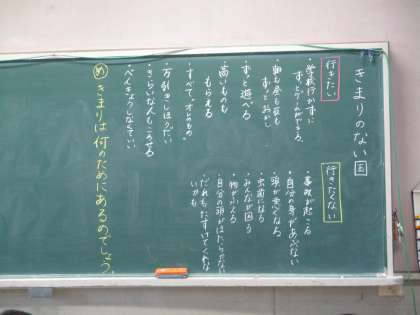 きまりのない国
行きたい
・学校行かずに
ずっとゲームができる。
・朝も昼も夜も
ずっとおかし
・ずっと遊べる
・高いものも
もらえる
・すべてオレのもの。
・万引きしほうだい
・きらいな人もころせる
・べんきょうしなくていい
行きたくない
・事故が起こる
・自分の身があぶない
・頭が悪くなる
・虫歯になる
・みんなが困る
・物がふえる
・自分の頭がはたらかない
・だれもたすけてくれな
いかも
め きまりは何のためにあるのでしょう。